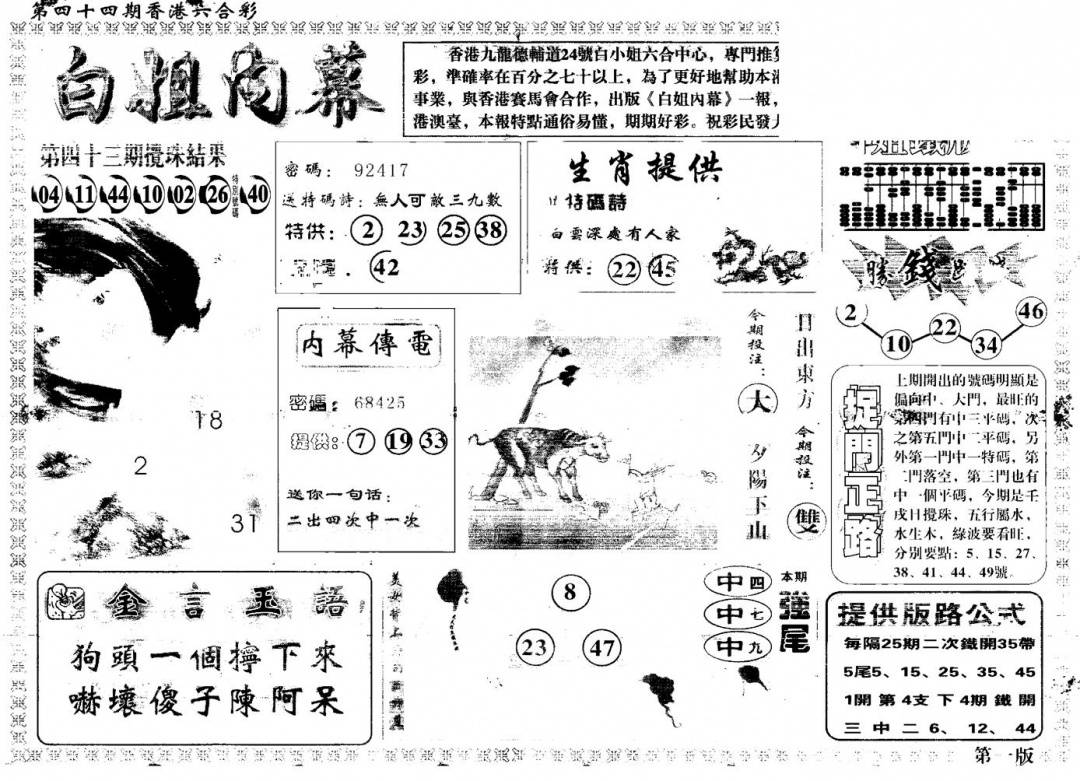 第四十四期香港六合彩
白姐內幕
香港九龍德輔道24號白小姐六合中心，專門推
彩，準確率在百分之七十以上，為了更好地幫助本
事業，與香港賽馬會合作，出版《白姐內幕》一報，
港澳臺，本報特點通俗易懂，期期好彩。祝彩民發
第四十三期攪珠結果
04 11 44 10 02 26 特別號碼 40
18
2
31
密碼：92417
送特碼詩：無人可敵三九數
特供：2 23 25 38
42
生肖提供
特碼詩
白雲深處有人家
特供：22 45
勝錢
2 10 22 34 46
內幕傳電
密碼：68425
提供：7 19 33
送你一句话：
二出四次中一次
今期投注：大
日出東方
今期投注：雙
夕陽下山
捉門正路
上期開出的號碼明顯是
偏向中、大門，最旺的
第四門有中三平碼，次
之第五門中二平碼，另
外第一門中一特碼，第
二門落空，第三門也有
中一個平碼，今期是壬
戌日攪珠，五行屬水，
水生木，綠波要看旺，
分別要點：5、15、27、
38、41、44、49號。
金言玉語
狗頭一個擰下來
嚇壞傻子陳阿呆
8
23 47
中四
中七
中九
本期
強尾
提供版路公式
每隔25期二次鐵開35帶
5尾5、15、25、35、45
1開第4支下4期鐵開
三中二6、12、44
第一版